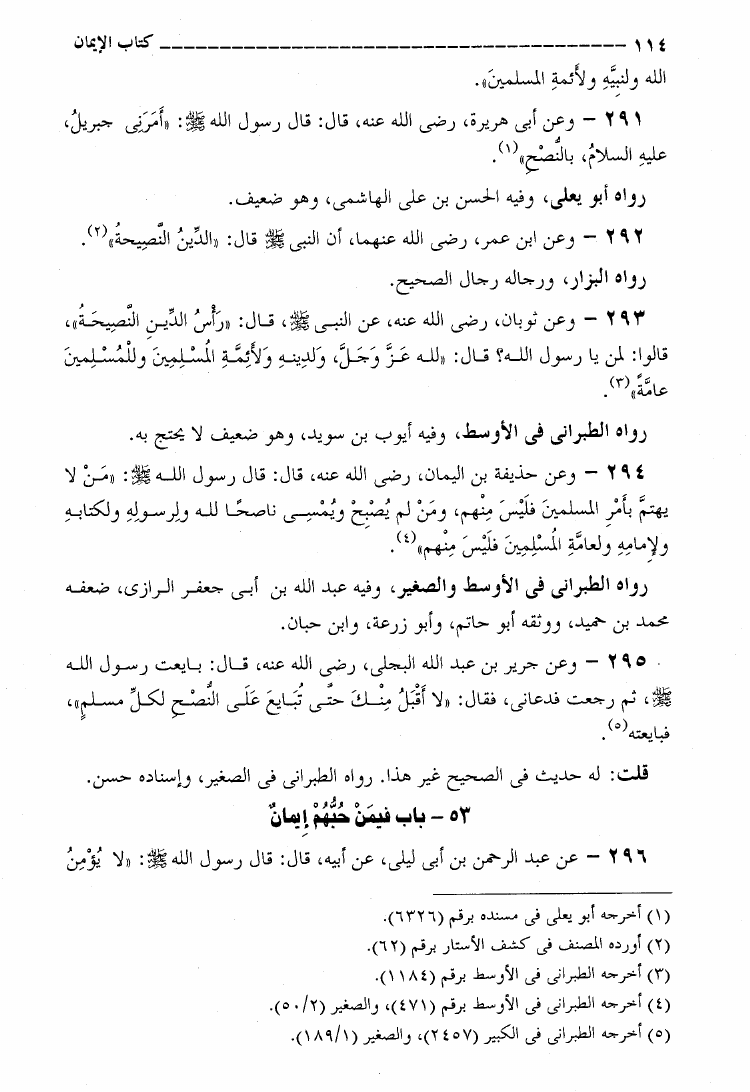 ١١٤ ــــــــــــــــــــــــــــــــــــــــــــــــــــــــ كتاب الإيمان
الله ولنبيَّهِ ولأئمةِ المسلمينَ».
٢٩١ – وعن أبى هريرة، رضى الله عنه، قال: قال رسول الله ﷺ: «أَمَرَنِى جبريلُ،
عليهِ السلامُ، بالنُّصْحِ»(١).
رواه أبو يعلى، وفيه الحسن بن على الهاشمى، وهو ضعيف.
٢٩٢ – وعن ابن عمر، رضى الله عنهما، أن النبى ﷺ قال: «الدِّينُ النَّصِيحةُ»(٢).
رواه البزار، ورجاله رجال الصحيح.
٢٩٣ – وعن ثوبان، رضى الله عنه، عن النبى ﷺ، قال: «رَأْسُ الدِّينِ النَّصِيحَةُ»،
قالوا: لمن يا رسول الله؟ قال: «لله عَزَّ وَجَلَّ، وَلدِينهِ وَلأَئِمَّةِ المُسْلِمِينَ وللْمُسْلِمِينَ
عامَّةً»(٣).
رواه الطبرانى فى الأوسط، وفيه أيوب بن سويد، وهو ضعيف لا يحتج به.
٢٩٤ – وعن حذيفة بن اليمان، رضى الله عنه، قال: قال رسول الله ﷺ: «مَنْ لا
يهتمَّ بأَمْرِ المسلمينَ فلَيْسَ مِنْهم، ومَنْ لم يُصْبِحْ ويُمْسِى ناصحًا لله ولِرسولِهِ ولكتابهِ
ولإمامِهِ ولعامَّةِ المُسْلِمِينَ فلَيْسَ مِنْهم»(٤).
رواه الطبرانى فى الأوسط والصغير، وفيه عبد الله بن أبى جعفر الرازى، ضعفه
محمد بن حميد، ووثقه أبو حاتم، وأبو زرعة، وابن حبان.
٢٩٥ – وعن جرير بن عبد الله البجلى، رضى الله عنه، قال: بايعت رسول الله
ﷺ، ثم رجعت فدعانى، فقال: «لا أَقْبَلُ مِنْكَ حتَّى تُبَايعَ عَلَى النُّصْحِ لكلِّ مسلمٍ»،
فبايعته(٥).
قلت: له حديث فى الصحيح غير هذا. رواه الطبرانى فى الصغير، وإسناده حسن.
٥٣ – باب فيمَنْ حُبُّهُمْ إِيمانٌ
٢٩٦ – عن عبد الرحمن بن أبى ليلى، عن أبيه، قال: قال رسول الله ﷺ: «لا يُؤْمِنُ
(١) أخرجه أبو يعلى فى مسنده برقم (٦٣٢٦).
(٢) أورده المصنف فى كشف الأستار برقم (٦٢).
(٣) أخرجه الطبرانى فى الأوسط برقم (١١٨٤).
(٤) أخرجه الطبرانى فى الأوسط برقم (٤٧١)، والصغير (٥٠/٢).
(٥) أخرجه الطبرانى فى الكبير (٢٤٥٧)، والصغير (١٨٩/١).